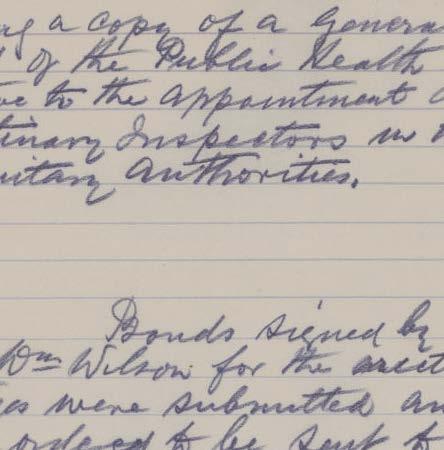 ng a copy of a Genera
of the Public Health
to the appointment
tinary Inspectors in
itary Authorities.
Bonds signed by
Wm Wilson for the erect
es were submitted an
ordered to be sent to